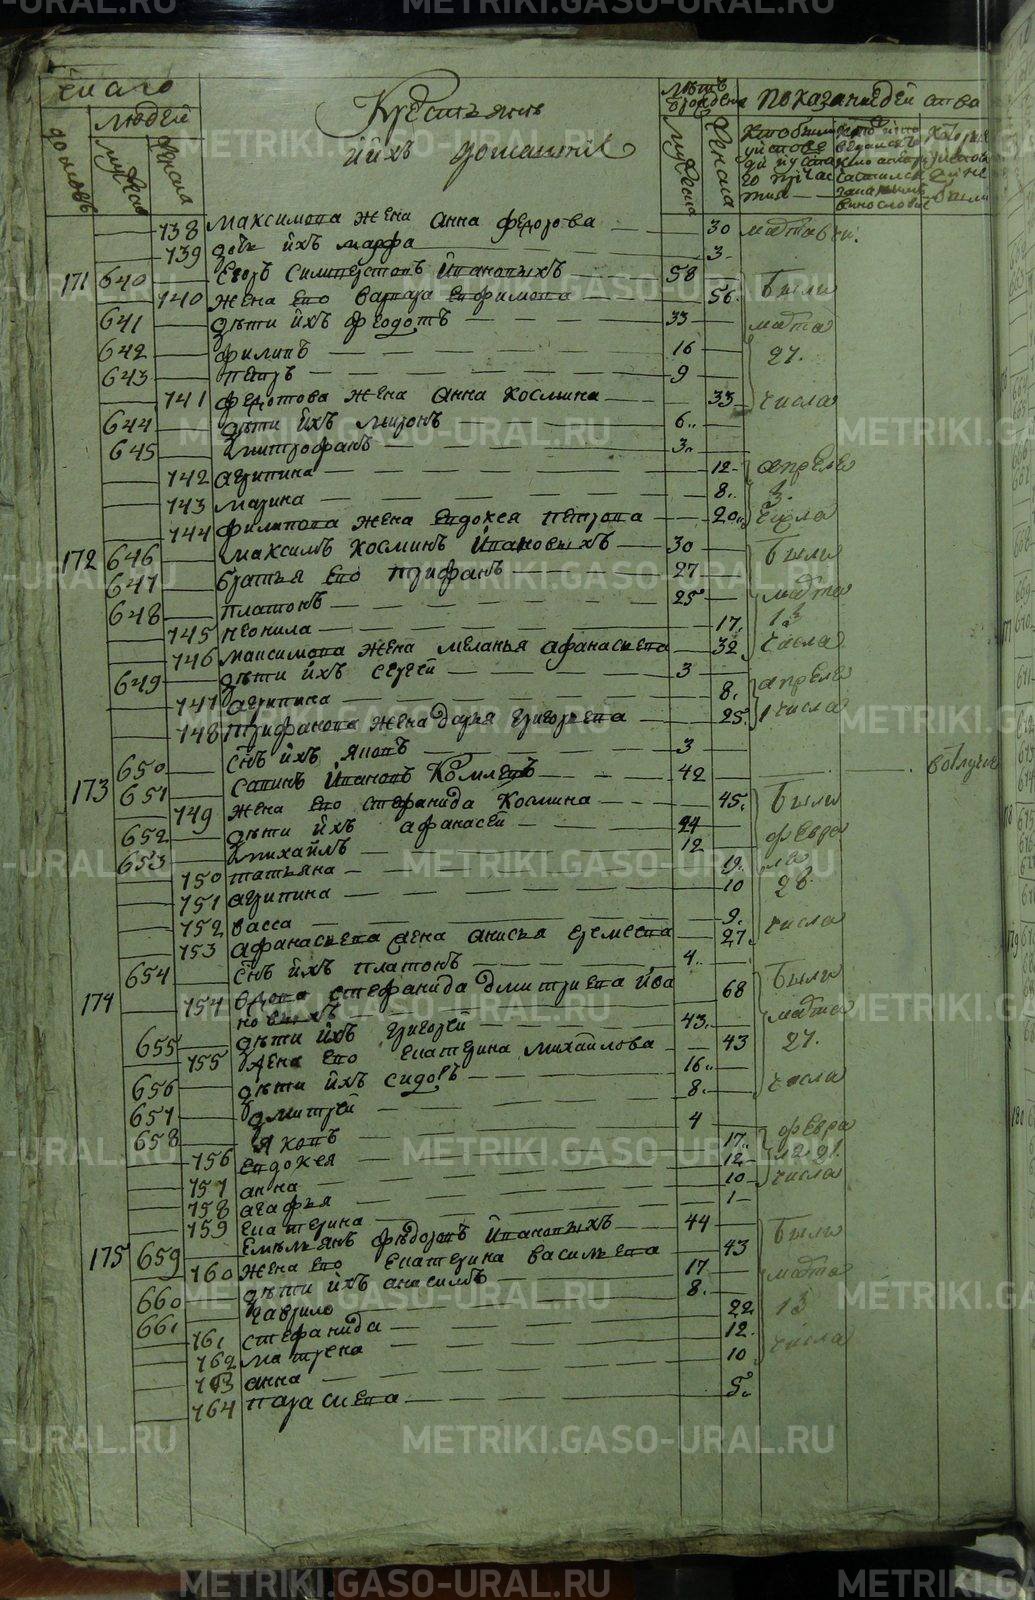 число
домовъ
людей
мужеска
женска
Крестьяне
и ихъ домашние
летъ от рождения
мужеска
женска
показание действа
738 максимова жена анна федорова 30
739 дочь ихъ марфа 3
171 640 егоръ силиверстовъ ивановыхъ 58
740 жена ево варвара ефимова 56
641 дети ихъ феодотъ 33
642 филипъ 16
643 петръ 9
741 федотова жена анна космина 33
644 дети ихъ миронъ 6
645 митрофанъ 3
742 агрипина 12
743 марина 8
744 филипова жена евдокея петрова 20
172 646 максимъ косминъ ивановыхъ 30
647 братья ево трифанъ 27
648 платонъ 25
745 неонила 17
746 максимова жена меланья афанасьева 32
649 дети ихъ сергей 3
747 агрипина 8
748 трифанова жена дарья григорьева 25
650 снъ ихъ яковъ 3
173 651 савинъ ивановъ комлевъ 42
749 жена ево стефанида космина 45
652 дети ихъ афанасей 24
653 михайлъ 12
750 татьяна 19
751 агрипина 10
752 васса 9
753 афанасьева жена анисья еремеева 27
654 снъ ихъ платонъ 4
174 754 вдова стефанида дмитриева ива 68
новыхъ
655 дети ихъ григорей 43
755 жена ево екатерина михайлова 43
656 дети ихъ сидоръ 16
657 дмитрей 8
658 яковъ 4
756 евдокея 17
757 анна 12
758 агафья 10
759 екатерина 1
175 659 емельянъ федоровъ ивановыхъ 44
760 жена ево екатерина васильева 43
660 дети ихъ анасимъ 17
661 гаврило 8
761 стефанида 22
762 матрена 12
763 анна 10
764 парасьева 5
были
марта
27
числа
апреля
3
числа
были
марта
13
числа
апреля
1 числа
были
февра
ля
28
числа
были
марта
27
числа
февра
числа
были
марта
13
числа
METRIKI.GASO-URAL.RU